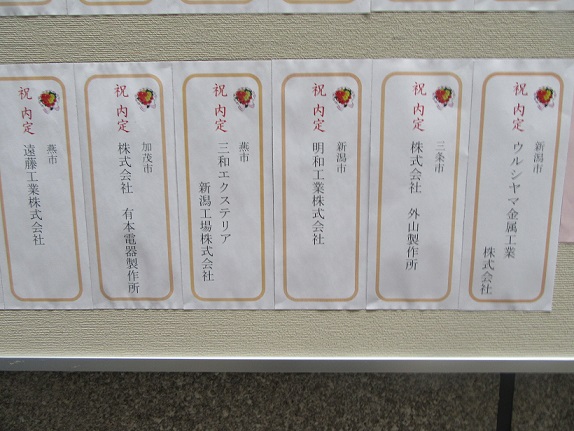 祝 内定
新潟市
ウルシヤマ金属工業
株式会社
祝 内定
三条市
株式会社 外山製作所
祝 内定
新潟市
明和工業株式会社
祝 内定
燕市
三和エクステリア
新潟工場株式会社
祝 内定
加茂市
株式会社 有本電器製作所
祝 内定
燕市
遠藤工業株式会社